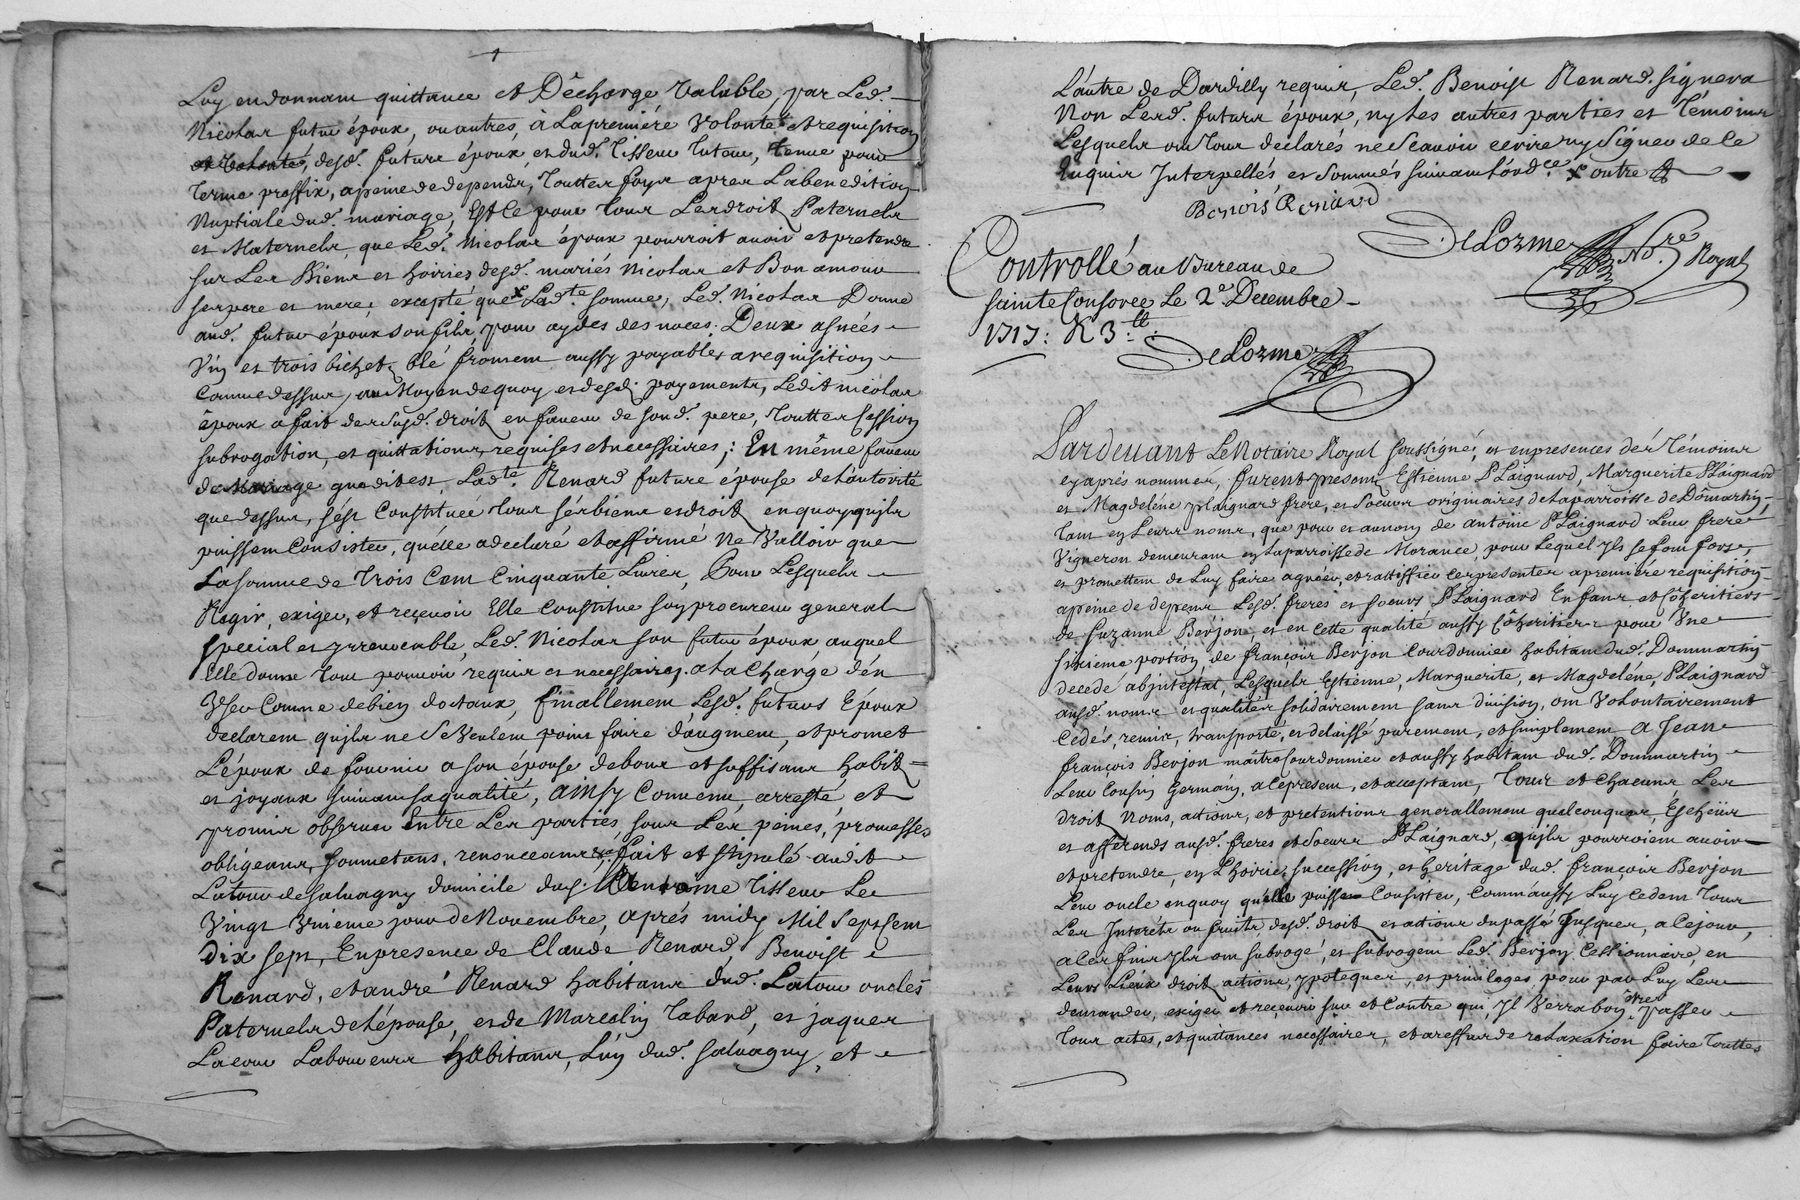 Luy en donnant quittance et Décharge Valable, par Led.
Nicolas futur époux, ou autres, a La premiére Volonté et requisition
desd. future époux, et dud. Tisseur Tuteur, tenue pour
Terme preffix, apeine de depends, Touttes foys apres La benediction
Nuptiale dud. mariage, Est Ce pour Tous Les droits Paternels
et Maternels, que Led. Nicolas époux pourroit avoir et pretendre
sur Les Biens et hoiries desd. mariés Nicolas et Bonamour
ses pere et mere; excepté que Lad.te somme, Led. Nicolas Donne
aud. futur époux son fils, pour aydes des noces. Deux asnées
Vin et trois bichets blé froment aussy payables a requisition
Comme dessus, au Moyen de quoy et desd. payements, Ledit nicolas
époux a fait des susd. droits en faveur de sond. pere, Touttes Cession
subrogation, et quittations requises et necessaires; En même faveur
de Mariage que dit est, Lad.te Renard future épouse de L'autorité
que dessus, s'est Constituée Tous ses biens et droits en quoy qu'ils
puissent Consister, qu'elle a declaré et affirmé Ne Valloir que
La somme de Trois Cent Cinquante Livres, Pour Lesquels
Regir, exiger, et reçevoir Elle Constitue son procureur general
special et yrrevocable, Led. Nicolas son futur époux auquel
Elle donne Tout pouvoir requis et necessaires, a la Charge d'en
Vser Comme de bien dotaux, finallement Lesd. futurs Epoux
declarent qu'ils ne Se Veulent point faire d'augment, et promet
L'époux de fournir a son épouse de bons et suffisans habits
et joyaux suivant sa qualité, ainsy Convenu, arresté, et
promis observer Entre Les parties sous Les peines, promesses
obligeans, soumetans, renonceans &a fait et stipulé audit
Latour de salvagny domicile dud. Tisseur Le
Vingt Vnieme jour de Novembre, aprés midy Mil Sept Cent
Dix sept, En presence de Claude Renard, Benoist
Renard, et andré Renard habitans dud. Latour oncles
Paternels de L'épouse, et de Marcelin Tabard, et jaques
Lacour Laboureurs habitans, L'un dud. salvagny, et
L'autre de Dardilly requis, Led. Benoist Renard signera
Non Lesd. futurs époux, ny les autres parties et Témoins
Lesquels ont Tous declarés ne Scavoir ecrire ny Signer de Ce
Enquis Interpellés et Sommés suivant l'ord.ce x outre
Benois Renard
DeLorme N.re Royal
Controllé au Bureau de
sainte Consorce Le 2e Decembre
1717: R 3 tt
DeLorme
Pardevant Le Notaire Royal soussigné, et en presences des Témoins
cy aprés nommés, furent presents Estienne PLaignard, Marguerite PLaignard
et Magdeléne plaignard frere, et soeurs originaires de La parroisse de Dômartin,
Tant en Leurs noms, que pour et au nom de antoine PLaignard Leur frere
Vigneron demeurant en La parroisse de Morancé, pour Lequel Ils se font fort,
et promettent de Luy faire agréer, et rattiffier Ces presentes a premiére requisition
apeine de depens Lesd. freres et soeurs PLaignard Enfans et Côheritiers
de suzanne Berjon, et en Cette qualité aussy Côheritiers pour Vne
sixieme portion de françois Berjon Courdonnier habitant dud. Dommartin
decedé abintestat, Lesquels Estienne, Marguerite, et Magdeléne, PLaignard
ausd. noms et qualités solidairement sans division, ont Volontairement
Cédés, remis, transporté, et delaissé purement, et simplement A Jean
françois Berjon maître Courdonnier et aussy habitant dud. Dommartin
Leur Cousin Germain, a Ce present, et acceptant, Tous et Chacuns Les
droits Noms, actions, et pretentions generallement quelconques, Escheüs
et afferends ausd. freres et Soeurs PLaignard, qu'ils pourroient avoir
et pretendre, en L'hoirie, succession, et heritage dud. françois Berjon
Leur oncle en quoy qu'elle puisse Consister, Comm'aussy Luy Cedent Tous
Les Interéts ou fruits desd. droits et actions du passé jusques, a Ce jour,
a Ces fins Ils ont subrogé, et subrogent Led. Berjon Cessionnaire, en
Leurs Lieux droits actions, ypoteques, et privileges pour par Luy Les
demander, exiger et reçevoir sur et Contre qui, Il Verra bon etre, Passer
Tous actes, et quittances necessaires, et a reffus de relaxation faire Touttes